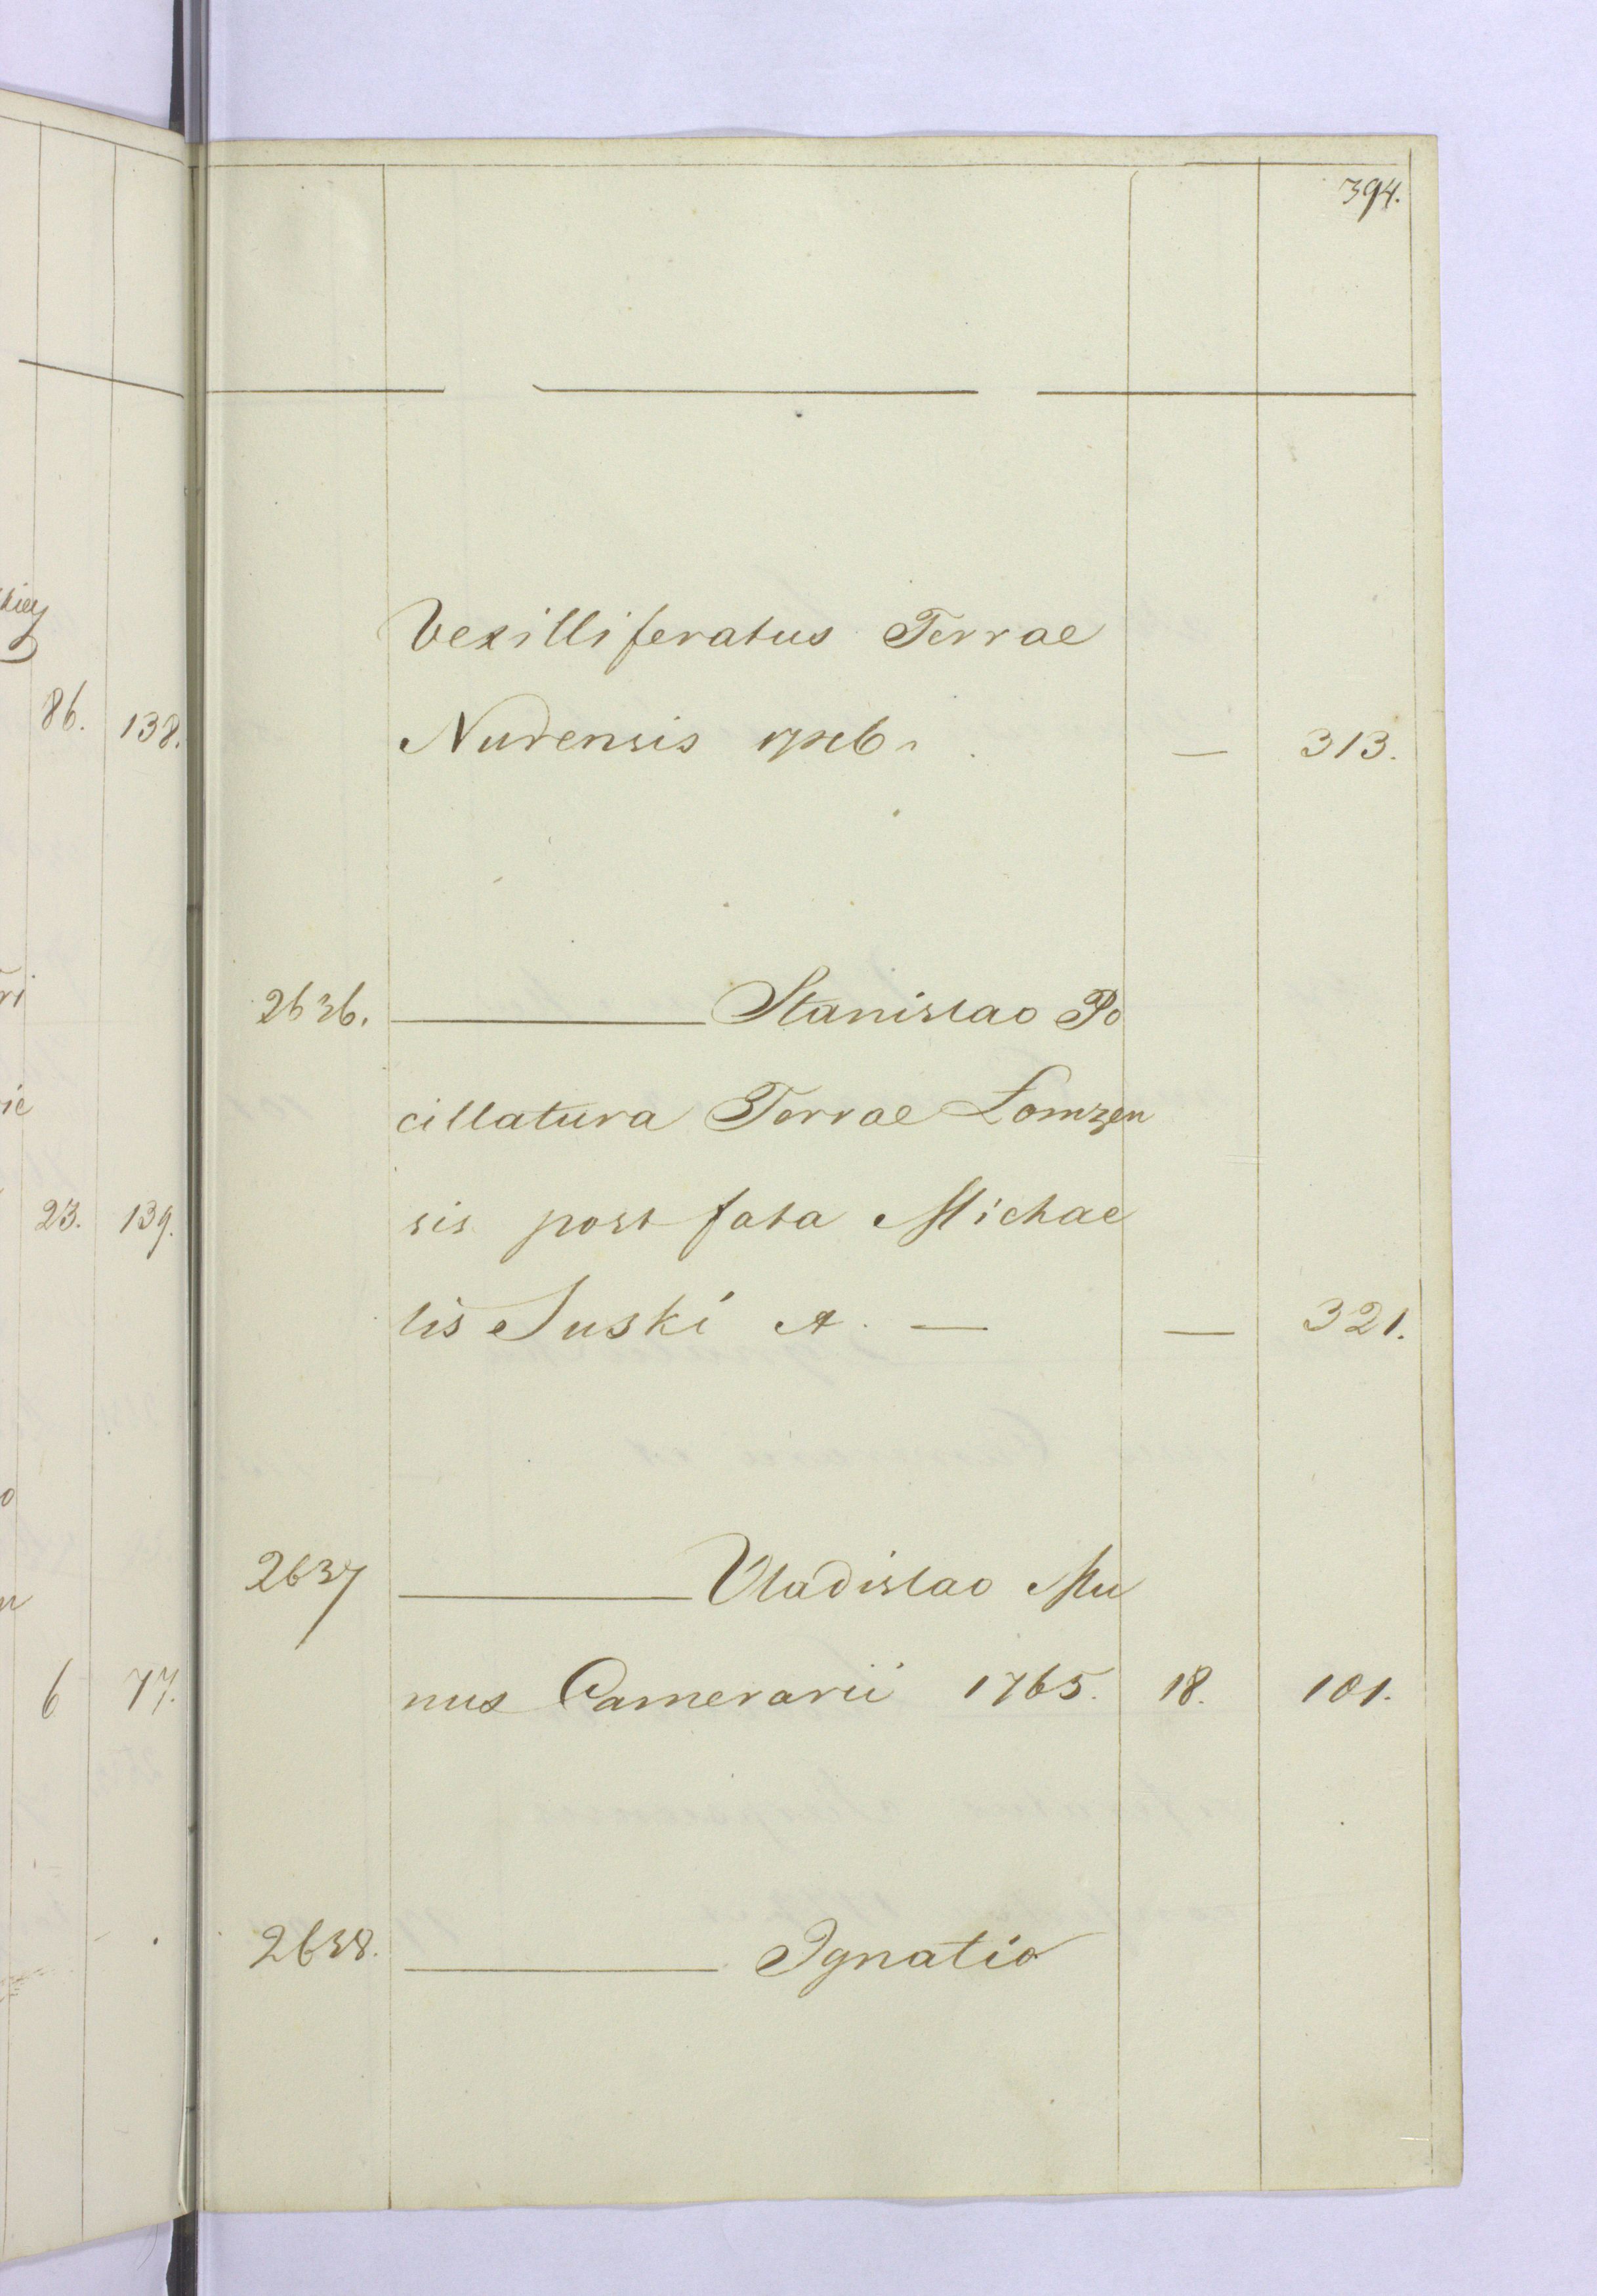 394.
Vexilliferatus Terrae
Nurensis — 313.
2636. Stanislao Po
cillatura Terrae Łomzen
sis post fata Michae
lis Suski A. — — 321.
2637 Vladislao Mu
nus Camerarii 1765. 18. 101.
2638. Ignatio
86. 138.
23. 139.
6 77.